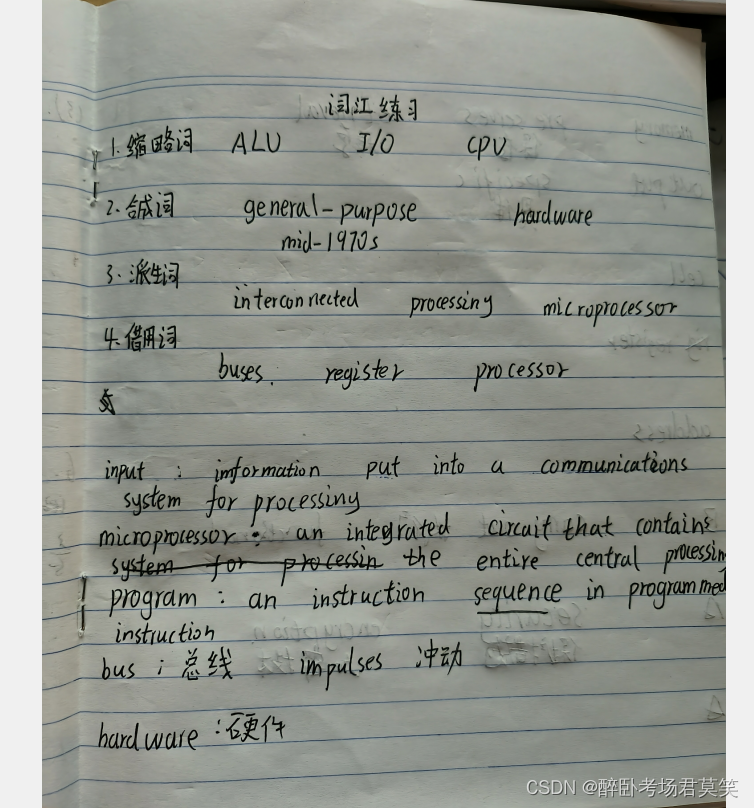 词汇练习
1. 缩略词 ALU I/O CPU
2. 合成词 general-purpose hardware
mid-1970s
3. 派生词
interconnected processing microprocessor
4. 借用词
buses. register processor
input : imformation put into a communications
system for processing
microprocessor : an integrated circuit that contains
system for processin the entire central processin
program : an instruction sequence in programmed
instruction
bus : 总线 impulses 冲动
hardware : 硬件
CSDN @醉卧考场君莫笑